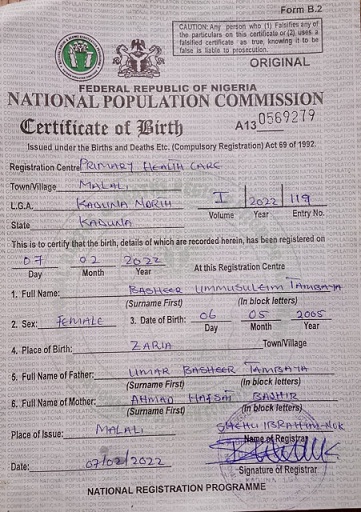 Form B.2
CAUTION: Any person who (1) Falsifies any of
the particulars on this certificate or (2) uses a
falsified certificate as true, knowing it to be
false is liable to prosecution.
ORIGINAL
FEDERAL REPUBLIC OF NIGERIA
NATIONAL POPULATION COMMISSION
Certificate of Birth A13 0569279
Issued under the Births and Deaths Etc. (Compulsory Registration) Act 69 of 1992
Registration Centre PRIMARY HEALTH CARE
Town/Village MALALI
L.G.A. KADUNA NORTH I 2022 119
Volume Year Entry No.
State KADUNA
This is to certify that the birth, details of which are recorded herein, has been registered on
07 02 2022
Day Month Year At this Registration Centre
1. Full Name: BASHEER UMMUSULEIM TAMBAYA
(Surname First) (In block letters)
2. Sex: FEMALE 3. Date of Birth: 06 05 2005
Day Month Year
4. Place of Birth: ZARIA Town/Village
5. Full Name of Father: UMAR BASHEER TAMBAYA
(Surname First) (In block letters)
6. Full Name of Mother: AHMAD HAFSAT BASHIR
(Surname First) (In block letters)
Place of Issue: MALALI SHEHU IBRAHIM
Name of Registrar
Date: 07/02/2022
Signature of Registrar
NATIONAL REGISTRATION PROGRAMME